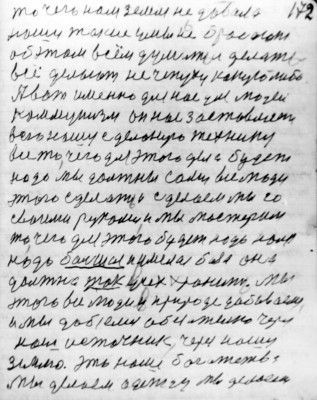 то чего нам земля не давала 172
наши такие умы не бросают
об этом всём думать и делать
всё делают не чепуху какую либо
А вот именно для нас для людей
коммунизм он нас заставляет
всю нашу сделаную технику
всё то чего для этого дела будет
надо мы должны сами все люди
это сделать и сделаем мы со
своими руками и мы мастерим
то чего для этого будет надо нам
надо бы она
должна так всех хранить. Мы
этого все люди в природе добываем
и мы добъемся обязательно через
наш источник, через нашу
землю. Это наше богатство
мы делаем одежду мы делаем